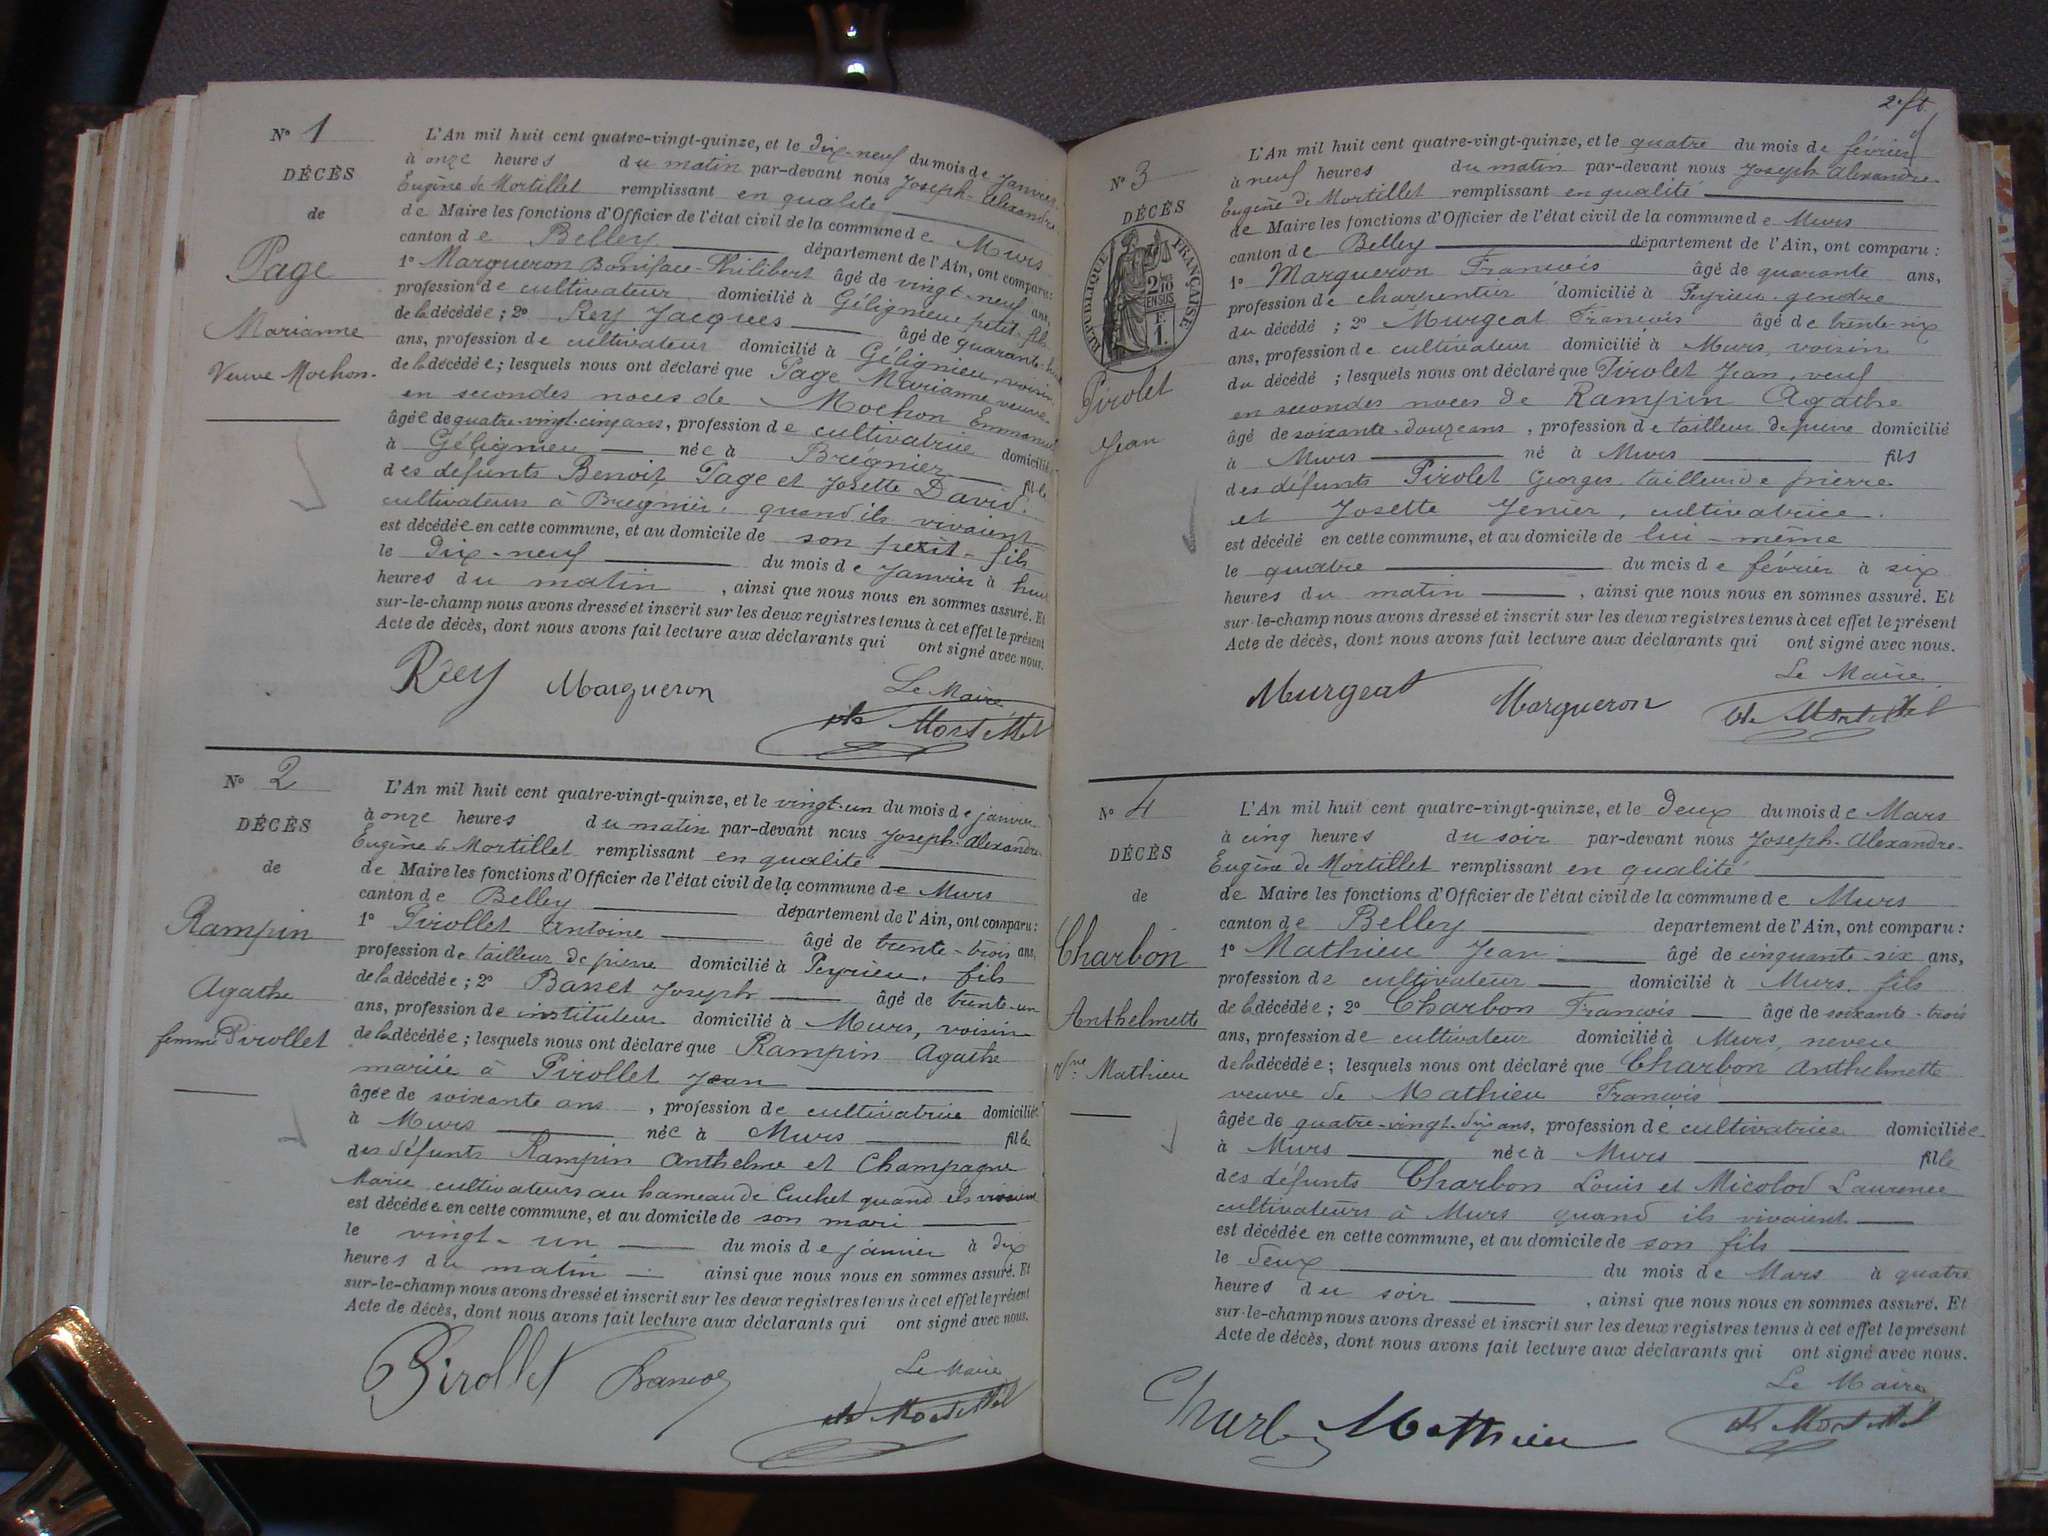 N° 1
DÉCÈS
de
Page
Marianne
Veuve Mochon.
L'An mil huit cent quatre-vingt-quinze, et le dix-neuf du mois de Janvier
à onze heures du matin par-devant nous Joseph-Alexandre
Eugène de Mortillet remplissant en qualité
de Maire les fonctions d'Officier de l'état civil de la commune de Murs
canton de Belley département de l'Ain, ont comparu :
1° Margueron Boniface-Philibert âgé de vingt-neuf ans,
profession de cultivateur domicilié à Gélignieu petit-fils
de la décédée ; 2° Rey Jacques âgé de quarante-
ans, profession de cultivateur domicilié à Gélignieu, voisin
de la décédée ; lesquels nous ont déclaré que Page Marianne veuve
en secondes noces de Mochon Emmanuel
âgée de quatre-vingt-cinq ans, profession de cultivatrice domiciliée
à Gélignieu née à Brégnier fille
des défunts Benoit Page et Josette David
cultivateurs à Brégnier, quand ils vivaient
est décédée en cette commune, et au domicile de son petit-fils
le dix-neuf du mois de Janvier à huit
heures du matin , ainsi que nous nous en sommes assuré. Et
sur-le-champ nous avons dressé et inscrit sur les deux registres tenus à cet effet le présent
Acte de décès, dont nous avons fait lecture aux déclarants qui ont signé avec nous.
Le Maire
Rey Margueron de Mortillet
N° 2
DÉCÈS
de
Rampin
Agathe
femme Pirollet
L'An mil huit cent quatre-vingt-quinze, et le vingt-un du mois de janvier
à onze heures du matin par-devant nous Joseph-Alexandre-
Eugène de Mortillet remplissant en qualité
de Maire les fonctions d'Officier de l'état civil de la commune de Murs
canton de Belley département de l'Ain, ont comparu :
1° Pirollet Antoine âgé de trente-trois ans,
profession de tailleur de pierre domicilié à Peyrieu, fils
de la décédée ; 2° Basset Joseph âgé de trente-un
ans, profession de instituteur domicilié à Murs, voisin
de la décédée ; lesquels nous ont déclaré que Rampin Agathe
mariée à Pirollet Jean
âgée de soixante ans , profession de cultivatrice domiciliée
à Murs née à Murs fille
des défunts Rampin Anthelme et Champagne
Marie cultivateurs au hameau de Cuchet quand ils vivaient
est décédée en cette commune, et au domicile de son mari
le vingt-un du mois de janvier à dix
heures du matin ainsi que nous nous en sommes assuré. Et
sur-le-champ nous avons dressé et inscrit sur les deux registres tenus à cet effet le présent
Acte de décès, dont nous avons fait lecture aux déclarants qui ont signé avec nous.
Le Maire
Pirollet de Mortillet
2e ft.
N° 3
DÉCÈS
RÉPUBLIQUE FRANÇAISE
2/10 EN SUS
1 F.
Pirolet
Jean
L'An mil huit cent quatre-vingt-quinze, et le quatre du mois de février
à neuf heures du matin par-devant nous Joseph-Alexandre-
Eugène de Mortillet remplissant en qualité
de Maire les fonctions d'Officier de l'état civil de la commune de Murs
canton de Belley département de l'Ain, ont comparu :
1° Margueron François âgé de quarante ans,
profession de charpentier domicilié à Peyrieu, gendre
du décédé ; 2° Murgeat François âgé de trente-six
ans, profession de cultivateur domicilié à Murs, voisin
du décédé ; lesquels nous ont déclaré que Pirolet Jean, veuf
en secondes noces de Rampin Agathe
âgé de soixante-douze ans , profession de tailleur de pierre domicilié
à Murs né à Murs fils
des défunts Pirolet Georges tailleur de pierre
et Josette Jenier, cultivatrice.
est décédé en cette commune, et au domicile de lui-même
le quatre du mois de février à six
heures du matin , ainsi que nous nous en sommes assuré. Et
sur-le-champ nous avons dressé et inscrit sur les deux registres tenus à cet effet le présent
Acte de décès, dont nous avons fait lecture aux déclarants qui ont signé avec nous.
Le Maire
Murgeat Margueron de Mortillet
N° 4
DÉCÈS
de
Charbon
Anthelmette
Vve Mathieu
L'An mil huit cent quatre-vingt-quinze, et le deux du mois de Mars
à cinq heures du soir par-devant nous Joseph-Alexandre-
Eugène de Mortillet remplissant en qualité
de Maire les fonctions d'Officier de l'état civil de la commune de Murs
canton de Belley département de l'Ain, ont comparu :
1° Mathieu Jean âgé de cinquante-six ans,
profession de cultivateur domicilié à Murs, fils
de la décédée ; 2° Charbon François âgé de soixante-trois
ans, profession de cultivateur domicilié à Murs, neveu
de la décédée ; lesquels nous ont déclaré que Charbon Anthelmette
veuve de Mathieu François
âgée de quatre-vingt-dix ans, profession de cultivatrice domiciliée
à Murs née à Murs fille
des défunts Charbon Louis et Micolod Laurence
cultivateurs à Murs quand ils vivaient
est décédée en cette commune, et au domicile de son fils
le deux du mois de Mars à quatre
heures du soir , ainsi que nous nous en sommes assuré. Et
sur-le-champ nous avons dressé et inscrit sur les deux registres tenus à cet effet le présent
Acte de décès, dont nous avons fait lecture aux déclarants qui ont signé avec nous.
Le Maire
Charbon Mathieu de Mortillet